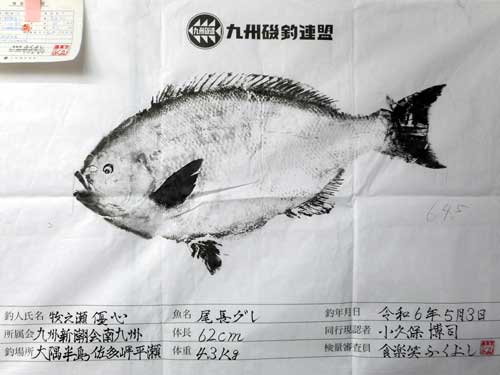 九州磯釣連盟
64.5
釣人氏名 牧之瀬 優心 魚名 尾長グレ 釣年月日 令和6年5月3日
所属会 九州新潮会南九州 体長 62cm 同行現認者 小久保 博司
釣場所 大隅半島佐多岬平瀬 体重 4.3Kg 検量審査員 食楽笑ふくよし